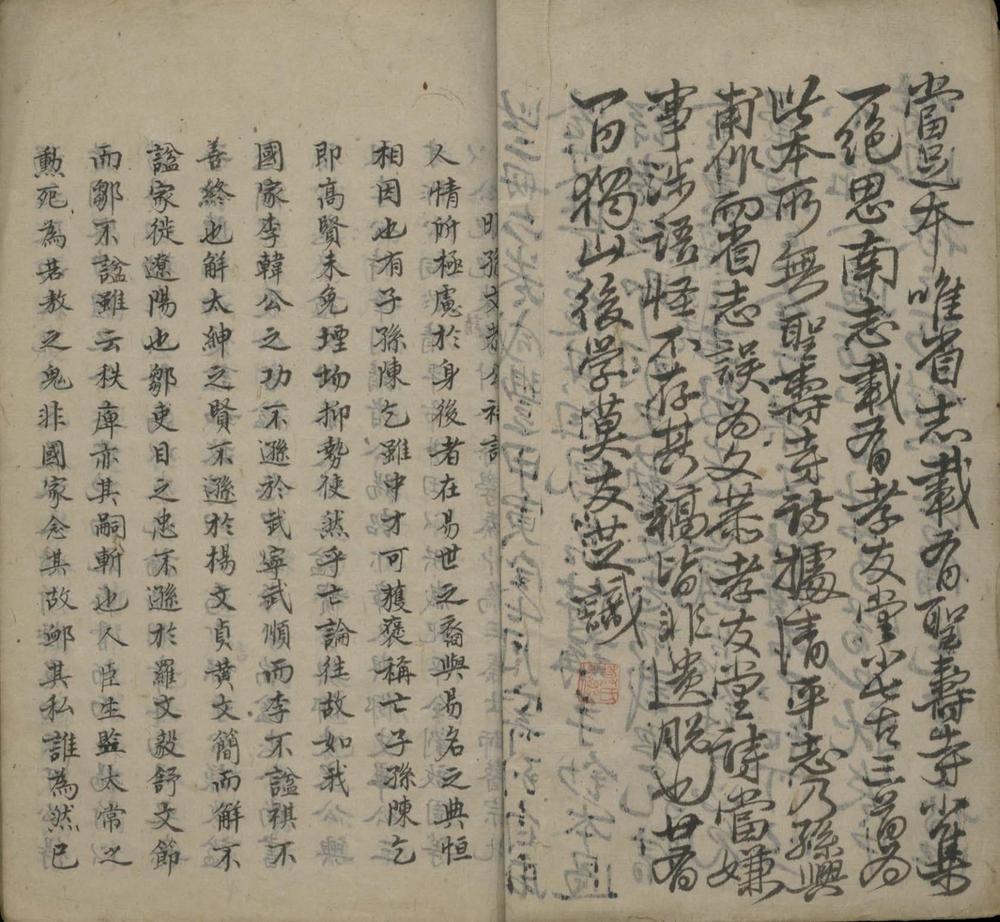 當足本唯省志載有聖壽寺小集
一絕思南志載有孝友堂七古三首為
此本所無聖壽寺詩據清平志乃孫興
甫作而省志誤為文恭孝友堂詩當嫌
事涉語怪不存其稿皆非遺脫也廿有
一日獨山後学莫友芝識
人情所極慮於身後者在易世之裔與易名之典恒
相因也有子孫陳乞雖中才可獲褒稱亡子孫陳乞
即高賢未免堙物抑勢使然乎亡論往故如我
國家李韓公之功不遜於武寧武順而李不諡祺不
善終也解太紳之賢不遜於楊文貞黃文簡而解不
諡家徙遼陽也鄒吏目之忠不遜於羅文毅舒文節
而鄒不諡雖云秩庳亦其嗣斬也人臣生監太常之
勳死為若敖之鬼非國家念其故䘏其私誰為然已